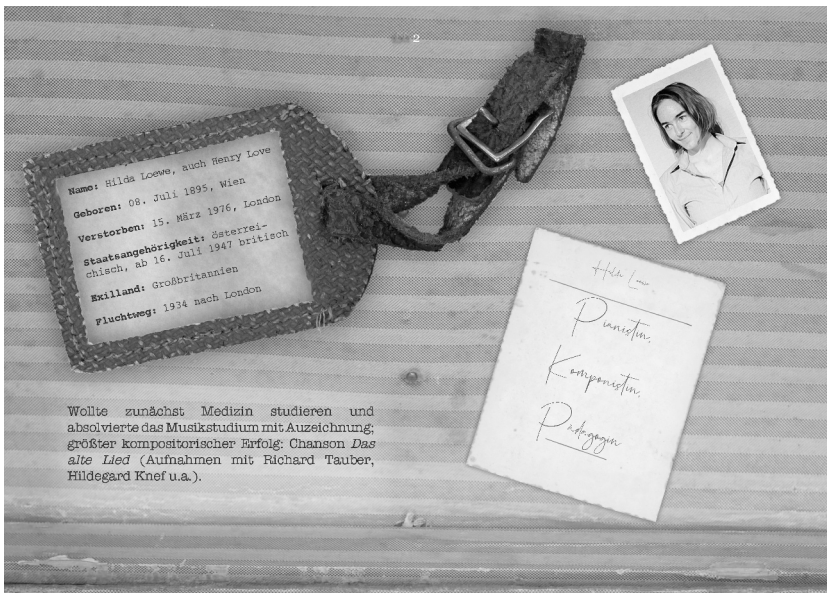 2
Name: Hilda Loewe, auch Henry Love
Geboren: 08. Juli 1895, Wien
Verstorben: 15. März 1976, London
Staatsangehörigkeit: österrei-
chisch, ab 16. Juli 1947 britisch
Exilland: Großbritannien
Fluchtweg: 1934 nach London
Hilda Loewe
Pianistin,
Komponistin,
Pädagogin
Wollte zunächst Medizin studieren und
absolvierte das Musikstudium mit Auzeichnung;
größter kompositorischer Erfolg: Chanson Das
alte Lied (Aufnahmen mit Richard Tauber,
Hildegard Knef u.a.).